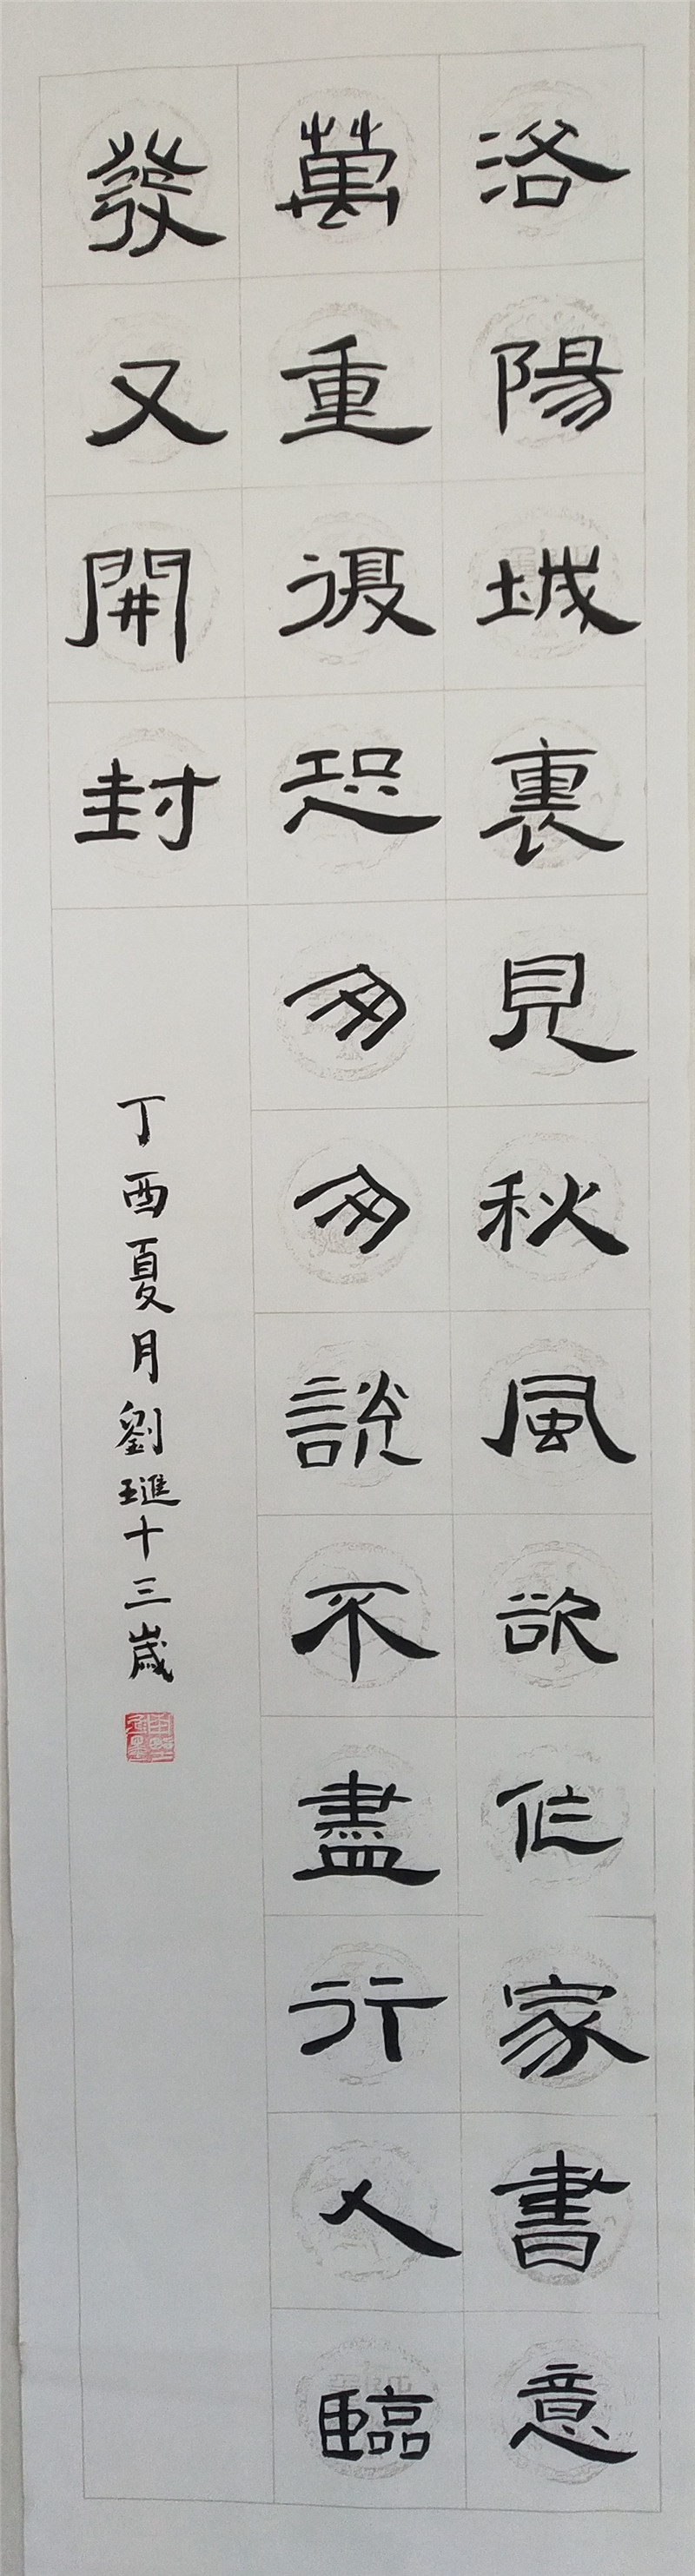 洛陽城裏見秋風欲作家書意
萬重復恐匆匆說不盡行人臨
發又開封
丁酉夏月劉璡十三歲